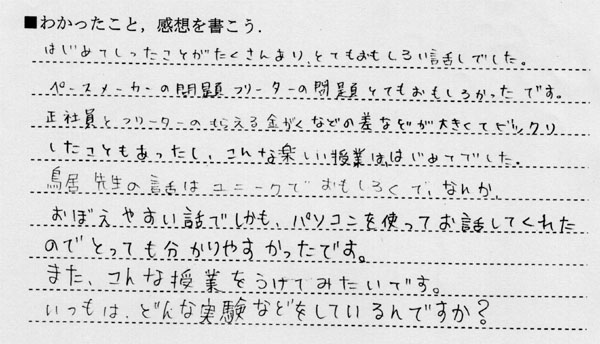 ■わかったこと，感想を書こう．
はじめてしったことがたくさんあり、とてもおもしろい話しでした。
ペースメーカーの問題フリーターの問題とてもおもしろかったです。
正社員とフリーターのもらえる金がくなどの差などが大きくてビックリ
したこともあったし、こんな楽しい授業は、はじめてでした。
鳥居先生の話はユニークでおもしろくて、なんか、
おぼえやすい話でしかも、パソコンを使ってお話してくれた
のでとっても分かりやすかったです。
また、こんな授業をうけてみたいです。
いつもは、どんな実験などをしているんですか？